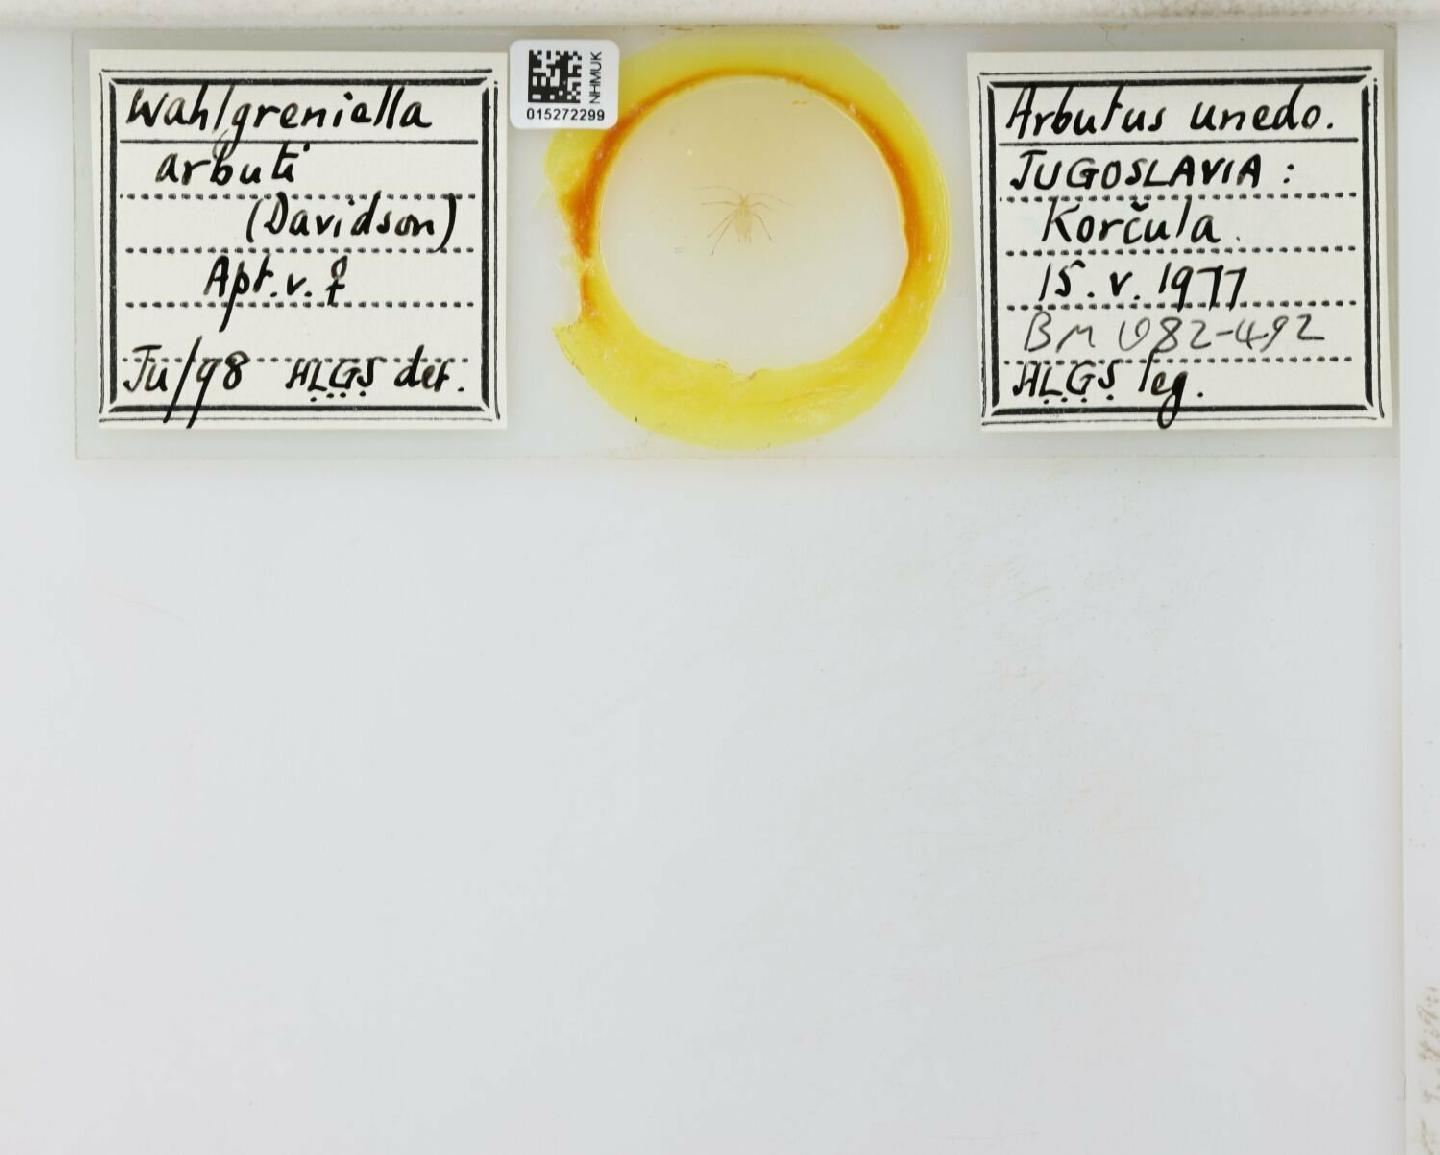 Wahlgreniella
arbuti
(Davidson)
Apt. v. ♀
Ju/98 HLGS det.
NHMUK
015272299
Arbutus unedo.
JUGOSLAVIA :
Korčula.
15.v.1977
BM 1982-492
HLGS leg.